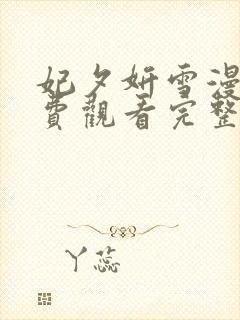 妃夕妍雪漫
費觀看完整
丫蕊